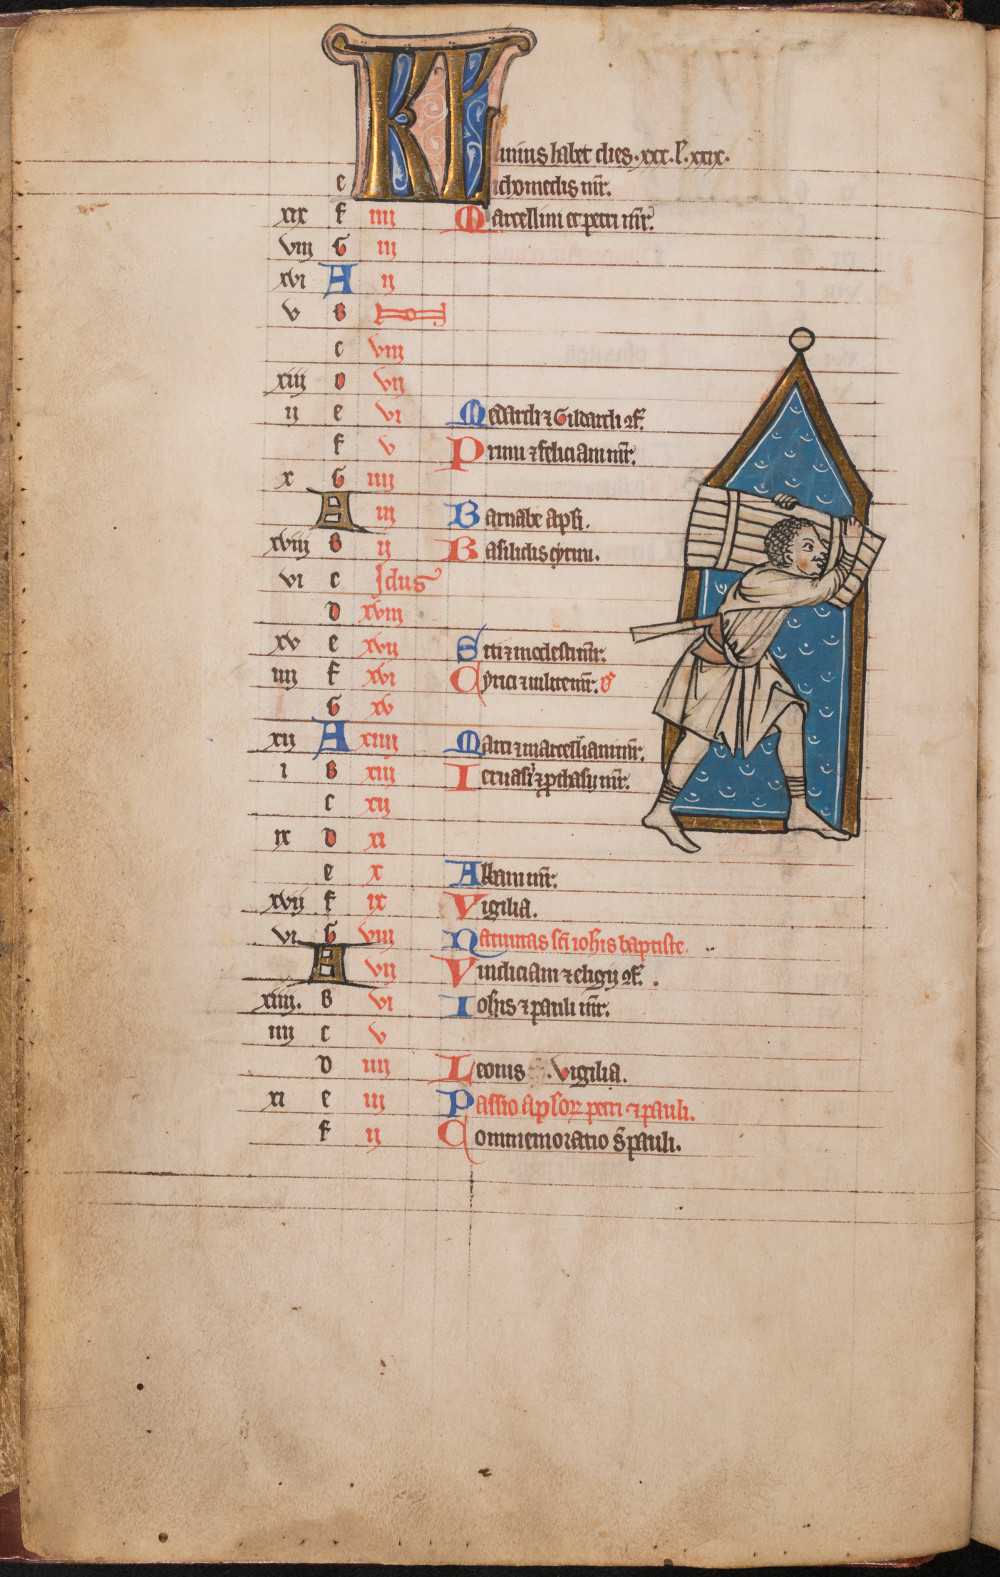 KL unius habet dies .xxx. l. xxix.
e ichomedis mr.
xix f iiii Marcellini et petri mr.
viii G iii
xvi A ii
v B
c viii
xiii D vii
ii e vi Medardi ⁊ Gildardi
f v Primi ⁊ feliciani mr.
x G iiii
A iii Barnabe apli.
xviii B ii Basilidis cyrini.
vi c Idus
D xviii
xv e xvii Sui ⁊ modesti mr.
iiii f xvi Cyrici ⁊ iulite mr.
G xv
xii A xiiii Marci ⁊ marcelliani mr.
i B xiii Geruasii ⁊ pthasii mr.
c xii
ix D xi
e x Albani mr.
xvii f ix Vigilia.
vi G viii Natiuitas sci iohis baptiste.
A vii Vindiciani ⁊ eligii
xiiii. B vi Iohis ⁊ pauli mr.
iiii c v
D iiii Leonis . vigilia.
xi e iii Passio aplor petri ⁊ pauli.
f ii Commemoratio s pauli.